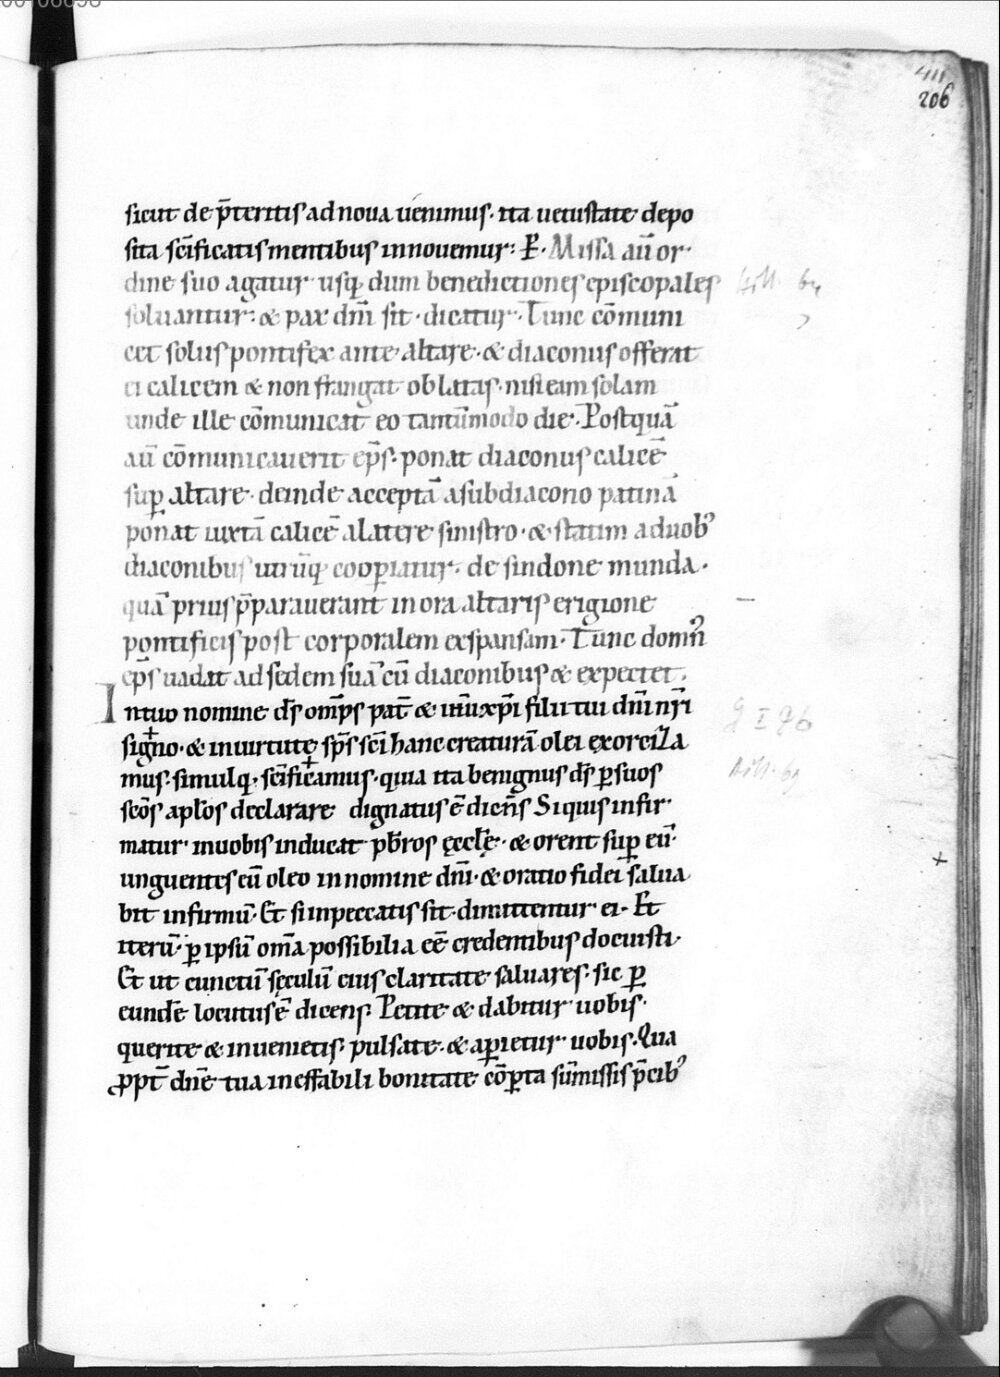 411
206
sicut de p̄teritis ad noua uenimus· ita uetustate depo
sita sc̄ificatis mentibus innouemur: P̄· Missa aū or·
dine suo agatur usq; dum benedictiones episcopales
soluantur: & pax dn̄i sit· dicatur· Tunc cōmuni
cet solus pontifex ante altare· & diaconus offerat
ei calicem & non frangat oblatas· nisi eam solam
unde ille cōmunicat eo tantūmodo die· Postquā
aū cōmunicauerit ep̄s· ponat diaconus calicē
sup altare· deinde acceptā a subdiacono patinā
ponat iuxtā calicē a latere sinistro· & statim a duob'
diaconibus utrūq; coop̱iatur· de sindone munda·
quā prius p̄parauerant in ora altaris e rigione
pontificis post corporalem exspansam· Tunc domn'
ep̄s uadat ad sedem suā cū diaconibus & expectet·
In tuo nomine ds̄ om̄ps pat̄ & in iħu xp̄i filii tui dn̄i nr̄i
signo· & in uirtute sp̄s sc̄i hanc creaturā olei exorciza
mus· simulq; sc̄ificamus· quia ita benignus ds̄ p̱ suos
sc̄os ap̄los declarare dignatus ē dicēns Siquis infir·
matur· in uobis inducat p̄bros ęccl̄ę· & orent sup eū·
unguentes eū oleo in nomine dn̄i· & oratio fidei salua
bit infirmū· Et si in peccatis sit· dimittentur ei· Et
iterū· p̱ ipsū om̄a possibilia eē credentibus docuisti·
Et ut cunctū sęculū eius claritate saluares· sic p̱
eundē locutus ē dicens· Petite & dabitur uobis·
querite & inuenietis· pulsate· & ap̱ietur uobis· Qua
p̱ppt̄ dn̄e tua ineffabili bonitate cōp̱ta sūmissis p̄cib'